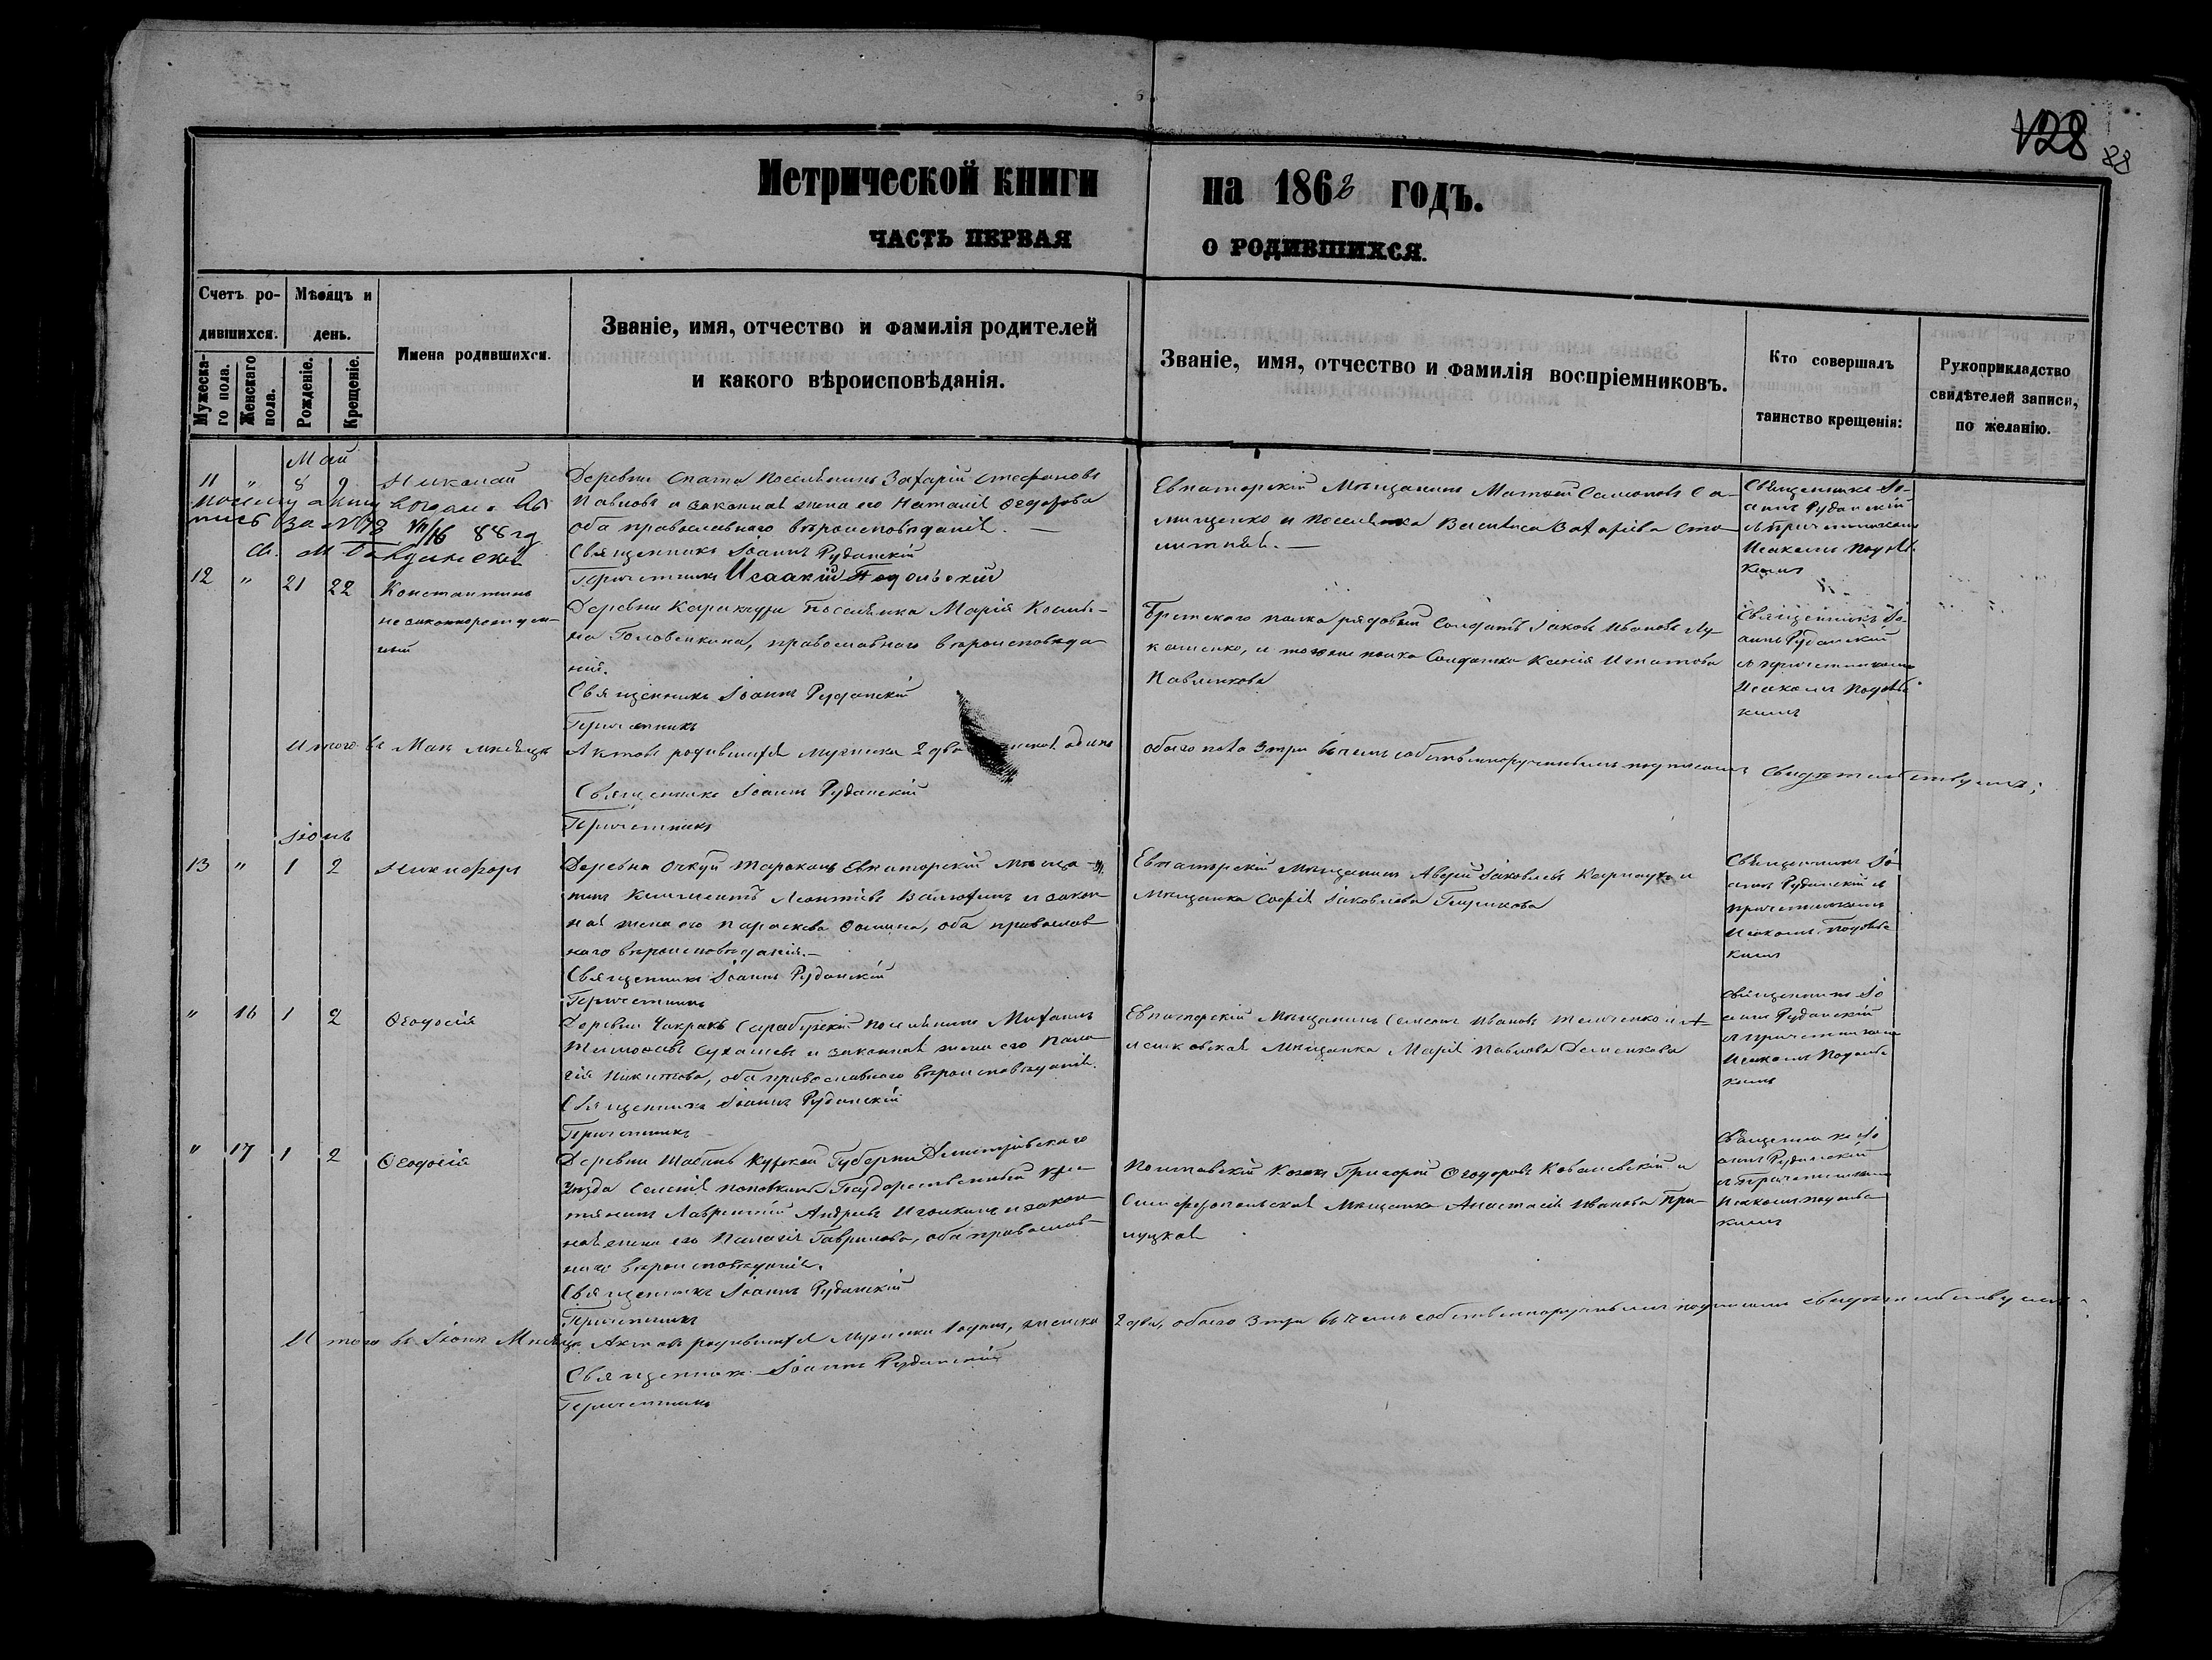 128
88
Метрической книги на 1862 годъ.
ЧАСТЬ ПЕРВАЯ О РОДИВШИХСЯ.
Счетъ ро-
дившихся.
Мѣсяцъ и
день.
Мужеска-
го пола.
Женскаго
пола.
Рожденіе.
Крещеніе.
Имена родившихся.
Званіе, имя, отчество и фамилія родителей
и какого вѣроисповѣданія.
Званіе, имя, отчество и фамилія воспріемниковъ.
Кто совершалъ
таинство крещенія:
Рукоприкладство
свидѣтелей записи,
по желанію.
Май
11 " 8 9 Николай
за № 78 88
Деревни Спата Поселянинъ Захарій Стефановъ
Павловъ и законная жена его Наталія Ѳедорова
оба православнаго вѣроисповѣданія.
Священникъ Іоаннъ Руданскій
Причетникъ Исаакій Подольскій
Евпаторскій Мѣщанинъ Матѳей Самоновъ Са-
мищенко и Поселянка Василиса Захаріева
Священникъ Іо-
аннъ Руданскій
съ причетникомъ
Исакомъ Подоль-
кимъ
12 " 21 22 Константинъ
незаконнорожден-
ный
Деревни Каракаджи Поселянка Марія Косми-
на Головенкина, православнаго вѣроисповѣда
нія.
Священникъ Іоаннъ Руданскій
Причетникъ
полка рядовый Солдатъ Іаковъ Ивановъ Лу-
кашенко, и тогоже полка Солдатка Ксенія Игнатова
Павленкова
Священникъ Іо-
аннъ Руданскій
съ причетникомъ
Исакомъ Подоль-
кимъ
Итого въ Маѣ мѣсяцѣ Актовъ родившихся мужеска 2 два женска одинъ
обоего пола 3 три въ чемъ собственноручнымъ подписомъ свидѣтельствуемъ;
Священникъ Іоаннъ Руданскій
Причетникъ
Іюнь
13 " 1 2 Никифоръ
Деревни Очкуй Тараканъ Евпаторскій Мѣща-
нинъ Климентъ Леонтіевъ и закон
ная жена его Параскева Ѳомина, оба православ
наго вѣроисповѣданія.
Священникъ Іоаннъ Руданскій
Причетникъ
Евпаторскій Мѣщанинъ Аверій Іаковлевъ Карнаухъ и
Мѣщанка Софія Іаковлева
Священникъ Іо-
аннъ Руданскій съ
причетникомъ
Исакомъ Подоль
кимъ
" 16 1 2 Ѳеодосія
Деревни Чакракъ Сарабузскій поселянинъ Михаилъ
Тимоѳеевъ Сухашевъ и законная жена его Пала
гія Никитова, оба православнаго вѣроисповѣданія.
Священникъ Іоаннъ Руданскій
Причетникъ
Евпаторскій Мѣщанинъ Семенъ Ивановъ и А-
лешковская Мѣщанка Марія Павлова Деменкова
Священникъ Іо
аннъ Руданскій
съ причетникомъ
Исакомъ Подоль
кимъ
" 17 1 2 Ѳеодосія
Деревни Курской Губерніи Дмитріевскаго
Уѣзда Селенія Поповкина Государственный Кре-
стянинъ Лаврентій Андреевъ и закон-
ная жена его Палагія Гаврилова, оба православ-
наго вѣроисповѣданія.
Священникъ Іоаннъ Руданскій
Причетникъ
Полтавскій Козакъ Григорій Ѳеодоровъ Ковалевскій и
Симферопольская Мѣщанка Анастасія Иванова При-
луцкая
Священникъ Іо
аннъ Руданскій
съ Причетникомъ
Исакомъ Подоль
кимъ
Итого въ Іюнѣ Мѣсяцѣ Актовъ родившихся мужеска 1 одинъ, женска
2 два, обоего 3 три въ чемъ собственноручнымъ подписомъ свидѣтельствуемъ
Священникъ Іоаннъ Руданскій
Причетникъ